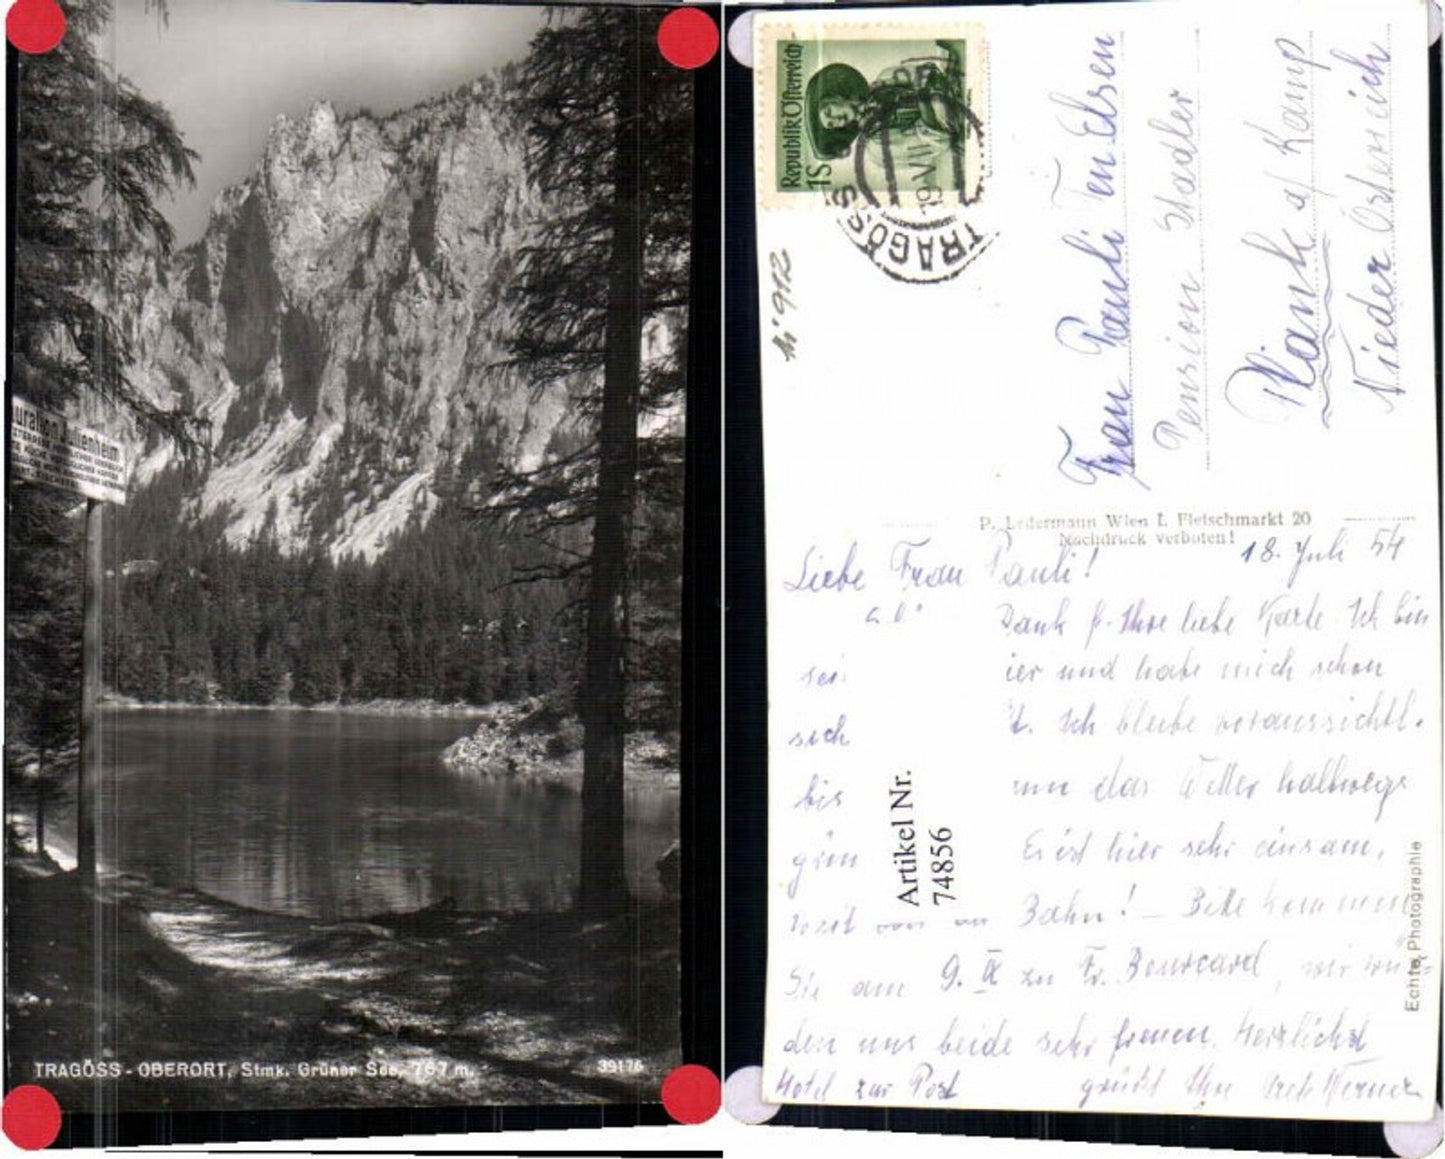 uration Julienheim
TRAGÖSS - OBERORT, Stmk. Grüner See, 767 m.
39176
Republik Österreich
1S
TRAGÖSS
19.VII
Frau Pauli Ten Elsen
Pension Stadler
Plank a/ Kamp
Nieder Österreich
P. Ledermann Wien I. Fleischmarkt 20
Nachdruck verboten!
18. Juli 54
Liebe Frau Pauli!
Dank f. Ihre liebe Karte. Ich bin
sei ier und habe mich schon
sich t. Ich bleibe voraussichtl.
bis nn das Wetter halbwegs
Es ist hier sehr einsam,
weit von Bahn! – Bitte kommen
Sie am 9. IX zu Fr. Bourcard, wir wür-
den uns beide sehr freuen. Herzlichst
Hotel zur Post grüßt Ihre Werner
Artikel Nr.
74856
Echte Photographie